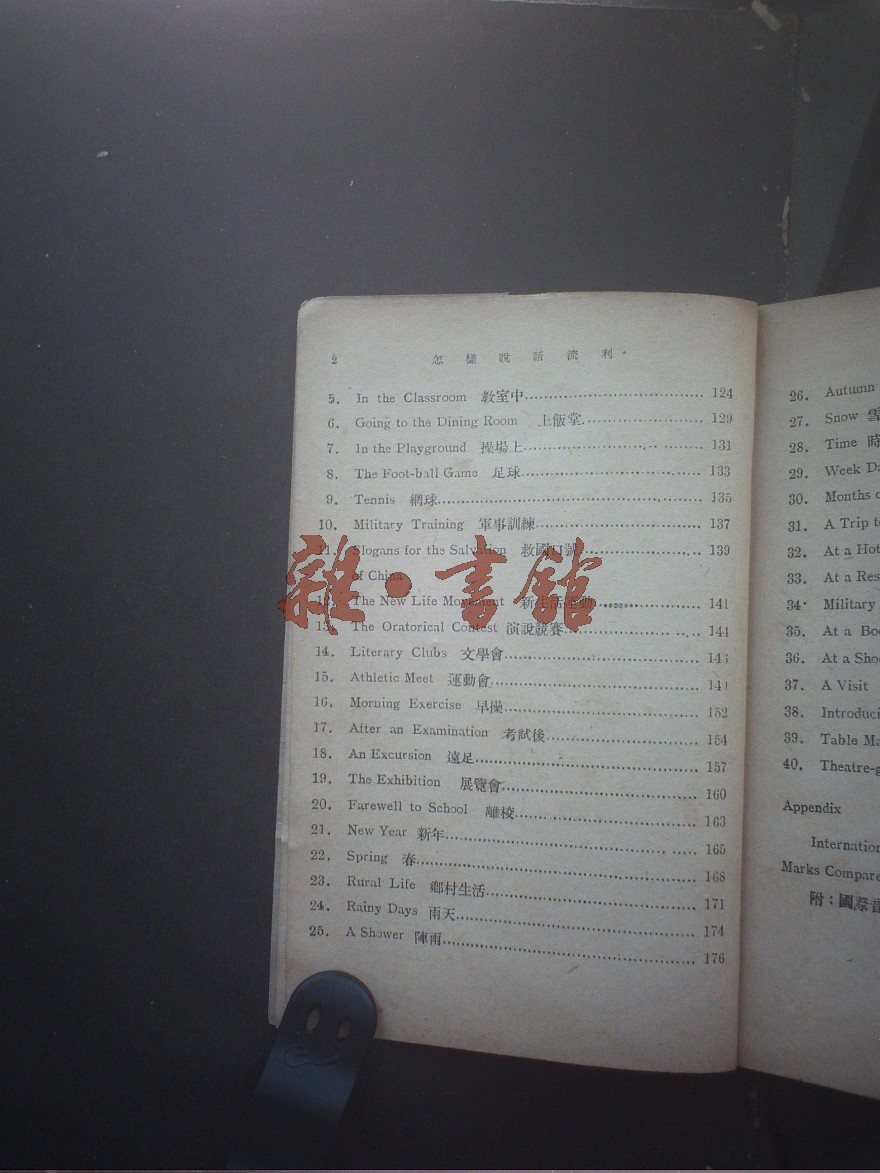 2 怎樣說話流利
5. In the Classroom 教室中 124
6. Going to the Dining Room 上飯堂 129
7. In the Playground 操場上 131
8. The Foot-ball Game 足球 133
9. Tennis 網球 135
10. Military Training 軍事訓練 137
11. Slogans for the Salvation 救國口號 139
of China
12. The New Life Movement 新生活運動 141
13. The Oratorical Contest 演說競賽 144
14. Literary Clubs 文學會
15. Athletic Meet 運動會
16. Morning Exercise 早操 152
17. After an Examination 考試後 154
18. An Excursion 遠足 157
19. The Exhibition 展覽會 160
20. Farewell to School 離校 163
21. New Year 新年 165
22. Spring 春 168
23. Rural Life 鄉村生活 171
24. Rainy Days 雨天 174
25. A Shower 陣雨 176
雜·書館
26. Autumn
27. Snow 雪
28. Time 時
29. Week
30. Months
31. A Trip
32. At a
33. At a
34. Military
35. At a
36. At a
37. A Visit
38.
39. Table
40.
Appendix
Marks
附：國際音